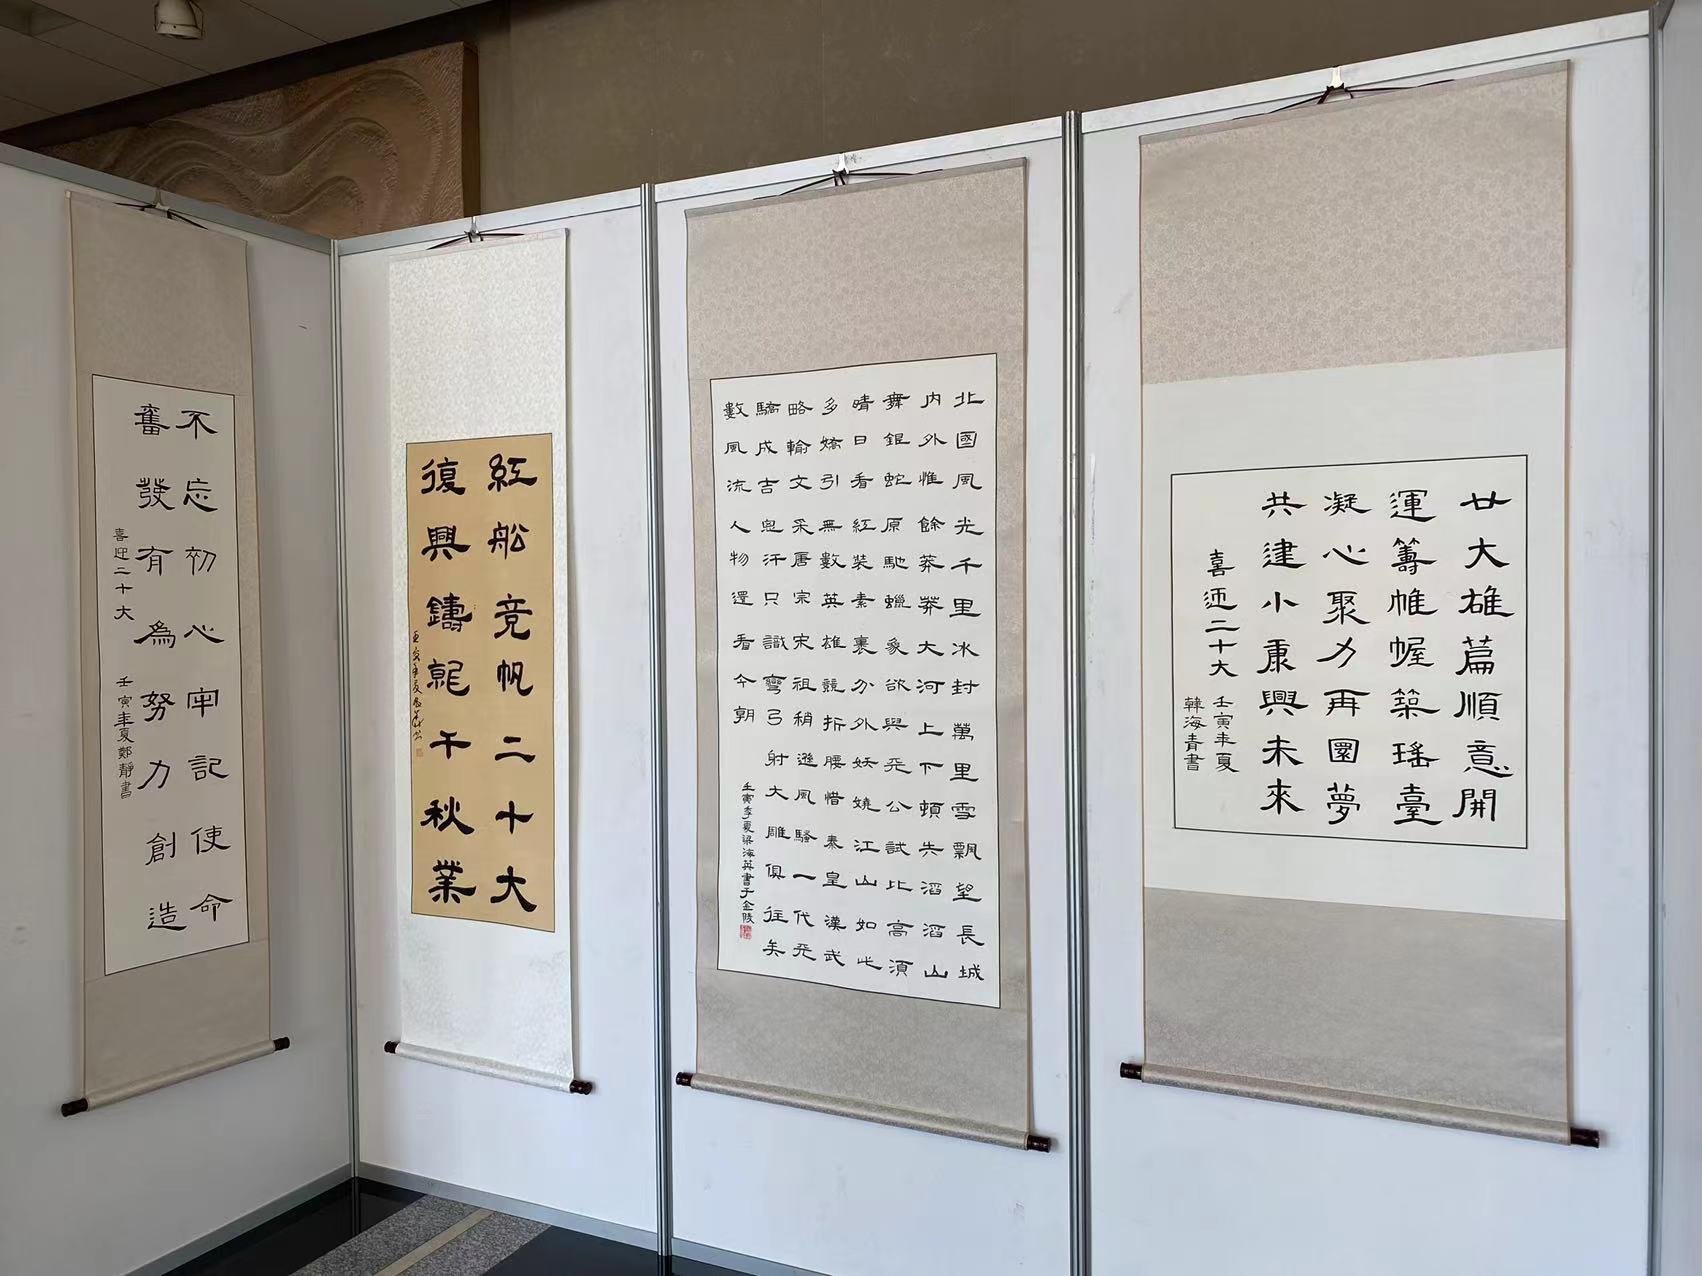 不忘初心牢記使命
奮發有為努力創造
喜迎二十大 壬寅年夏鄭靜書
紅船竞帆二十大
復興鑄就千秋業
北國風光千里冰封萬里雪飄望長城
内外惟餘莽莽大河上下頓失滔滔山
舞銀蛇原馳蠟象欲與天公試比高須
晴日看紅裝素裹分外妖嬈江山如此
多嬌引無數英雄競折腰惜秦皇漢武
略輸文采唐宗宋祖稍遜風騷一代天
驕成吉思汗只識彎弓射大雕俱往矣
數風流人物還看今朝
壬寅季夏梁海英書于金陵
廿大雄篇順意開
運籌帷幄築瑤臺
凝心聚力再圓夢
共建小康興未來
喜迎二十大
壬寅年夏
韓海青書